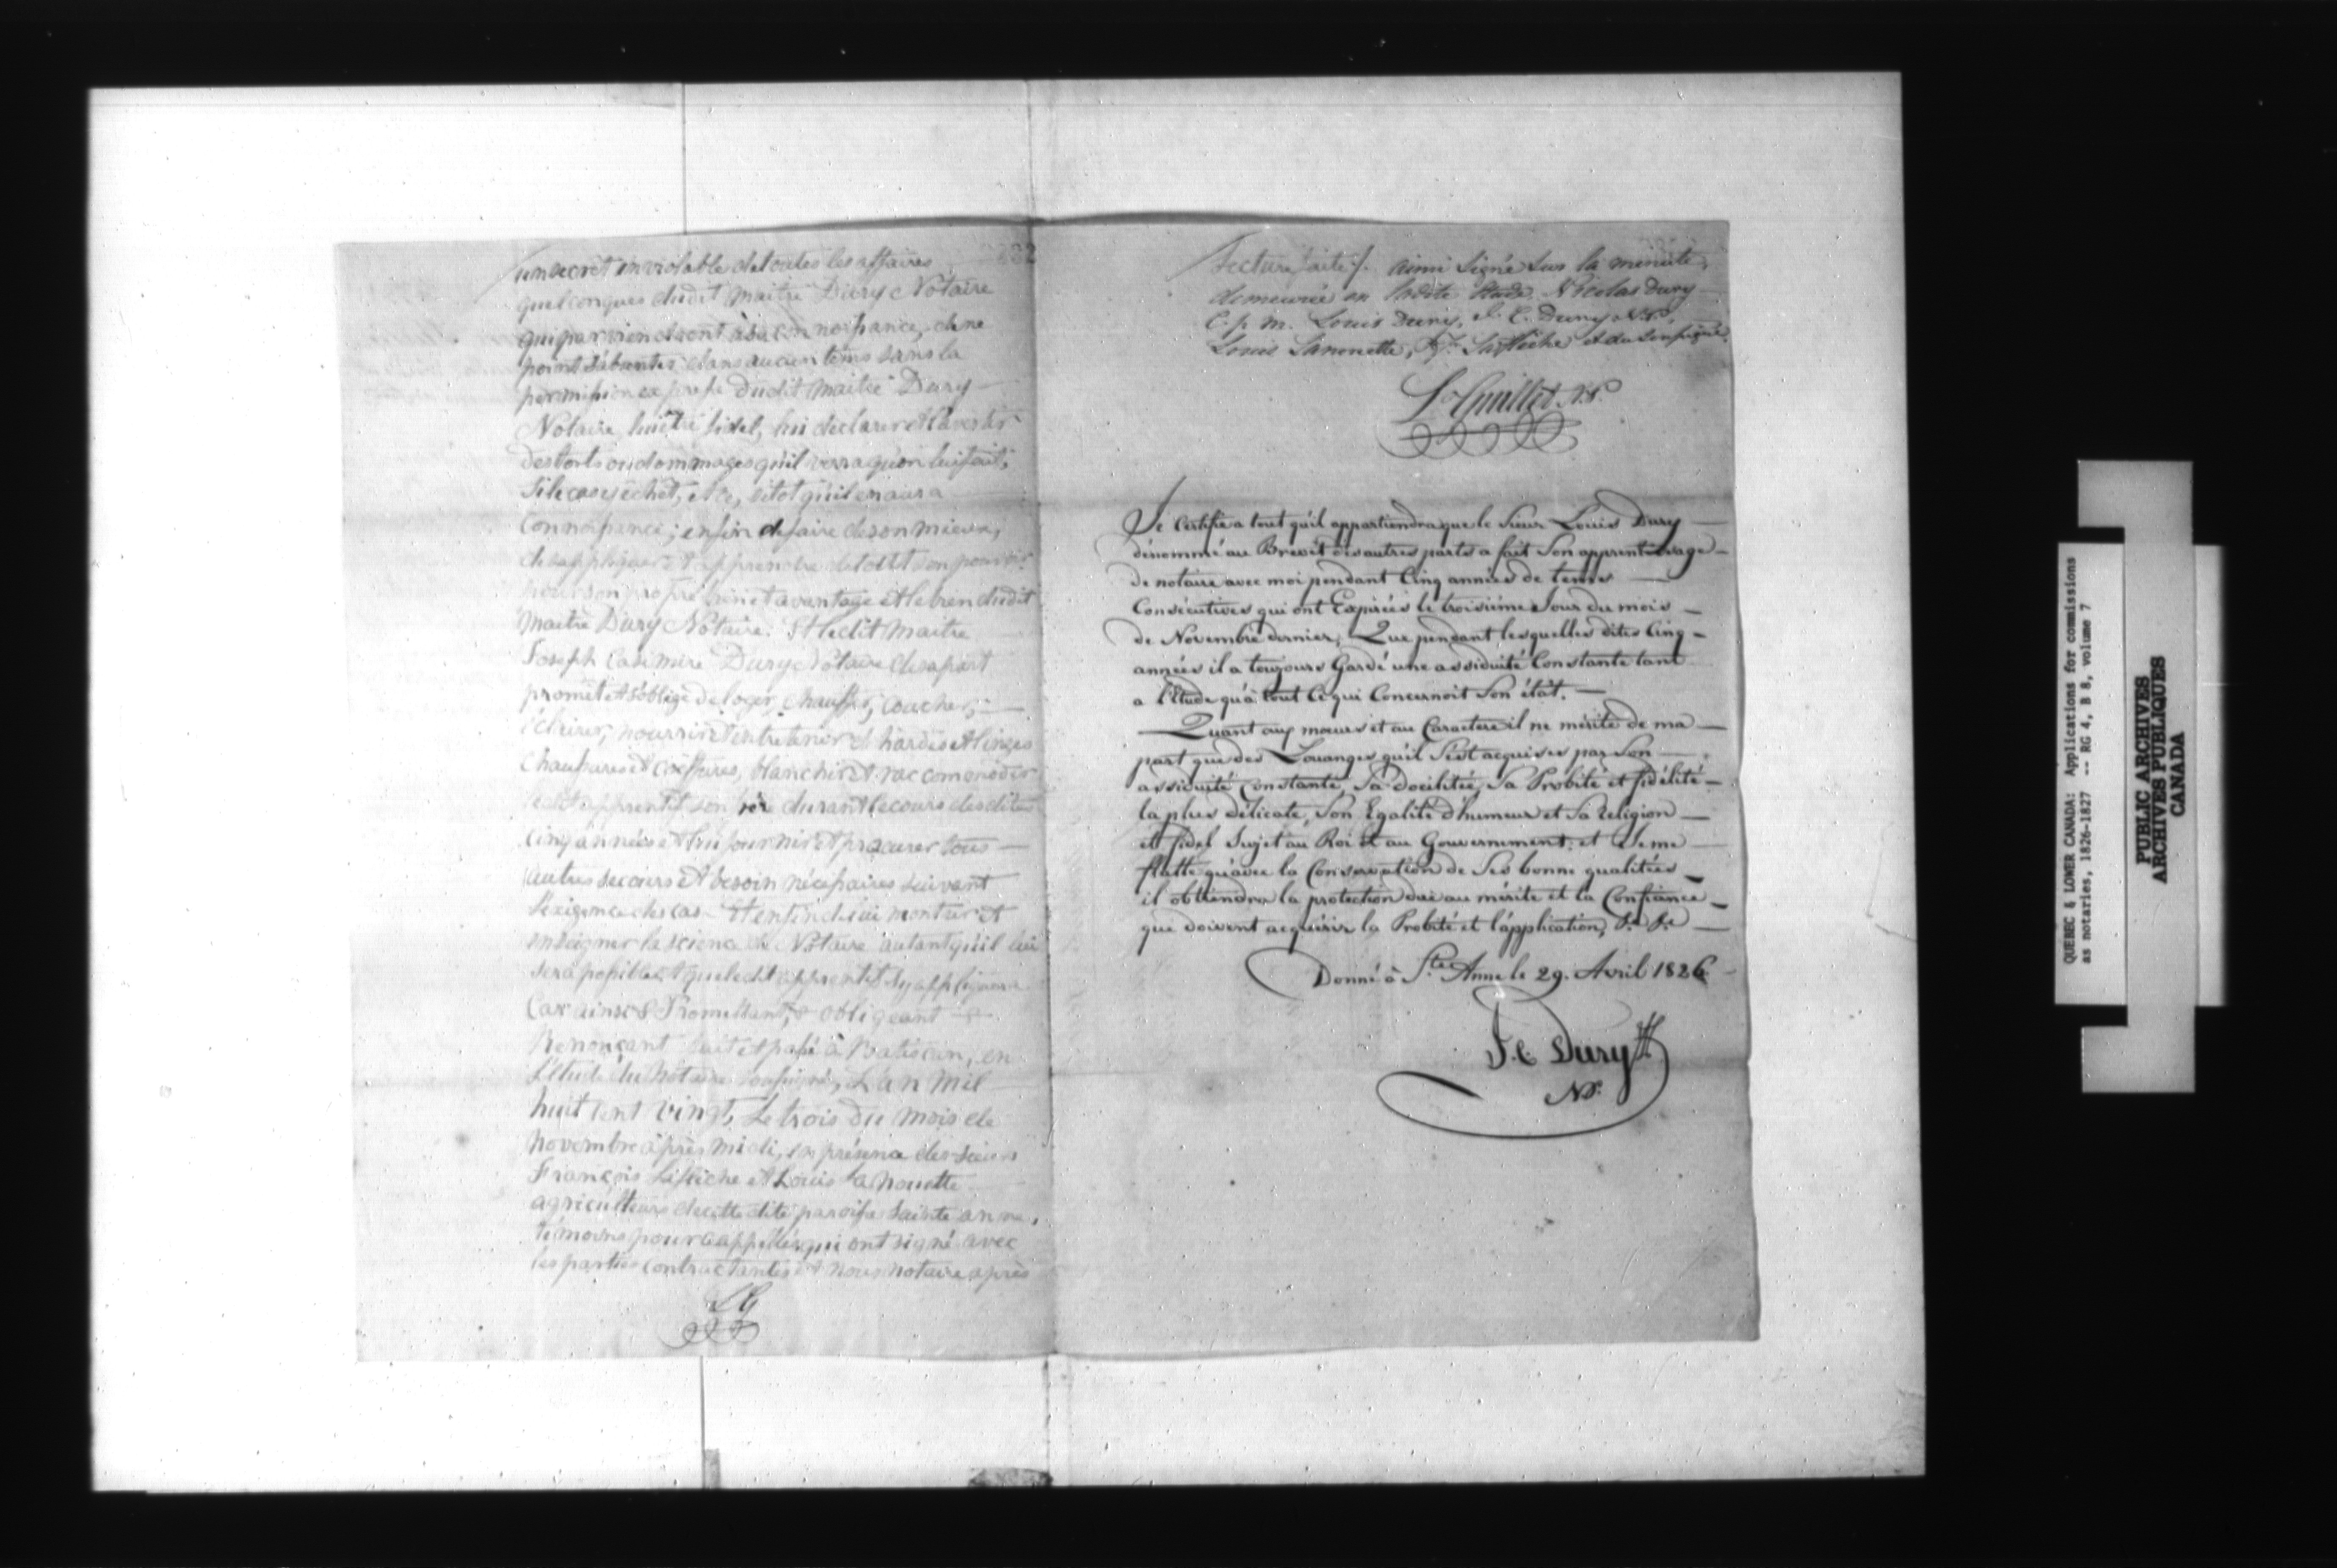 un secrêt inviolable de toutes les affaires
quelconques dudit Maitre Dury Notaire
qui parviendront à sa connoissance, de ne
point s'absenter dans aucun tems sans la
permission expresse dudit Maitre Dury
Notaire, lui être fidel, lui declarer et l'avertir
des torts ou dommages qu'il verra qu'on lui fait,
si le cas y échet, et ce, sitot qu'il en aura
Connoissance; enfin de faire de son mieux,
de s'appliquer et apprendre de tout son pouvoir
pour son propre bien et avantage et le bien dudit
Maitre Dury Notaire. Et ledit Maitre
Joseph Casimire Dury Notaire de sa part
promêt et s'oblige de loger, chauffer, coucher,
éclairer, nourrir et entretenir de hardes et linges
Chaussures et coeffures, blanchir et raccommoder
ledit apprentif son frère durant le cours desdites
cinq années et lui fournir et procurer tous
autres secours et besoin nécessaires suivant
l'exigence des cas. Et enfin de lui montrer et
enseigner la science de Notaire autant qu'il lui
sera possible et que ledit apprentif s'y appliquera
Car ainsi &c Promettant, &c obligeant &c
Renonçant fait et passé à Batiscan, en
l'étude du Notaire soussigné, L'an Mil
huit cent vingt, Le trois du mois de
Novembre après midi, en présence des sieurs
François Laflèche et Louis Lanouette
agriculteurs de cette dite paroisse Sainte anne,
témoins pour ce appellés qui ont signé avec
les parties contractantes et nous notaire après
LG
Lecture faite ./. ainsi Signé Sur la minute,
demeurée en ladite Etude, Nicolas Dury
C. p. m. Louis Dury, J. C. Dury N.P.,
Louis Lanouette, Fs. Laflèche et du Soussigné.
Ls Guillet N.P.
Je Certifie a tout qu'il appartiendra que le Sieur Louis Dury
dénommé au Brevêt des autres parts a fait Son apprentissage
de notaire avec moi pendant Cinq années de tems
Consécutives qui ont Expirées le troisiéme Jour du mois
de Novembre dernier, Que pendant lesquelles dites Cinq
années il a toujours Gardé une assiduité Constante tant
a l'étude qu'à tout Ce qui Concernoit Son état.
Quant aux mœurs et au Caractere il ne mérite de ma
part que des Louanges qu'il S'est acquises par Son
assiduité Constante, Sa docilitée, Sa Probité et fidélité
la plus délicate, Son Egalité d'humeur et Sa religion
et fidel Sujet au Roi et au Gouvernement. et Je me
flatte qu'avec la Conservation de Ses bonne qualitées
il obtiendra la protection due au mérite et la Confiance
que doivent acquérir la Probité et l'application, &c. &c.
Donné à Ste Anne le 29. Avril 1826
J. C. Dury
NP.
QUEBEC & LOWER CANADA: Applications for commissions
as notaries, 1826-1827 -- RG 4, B 8, volume 7
PUBLIC ARCHIVES
ARCHIVES PUBLIQUES
CANADA